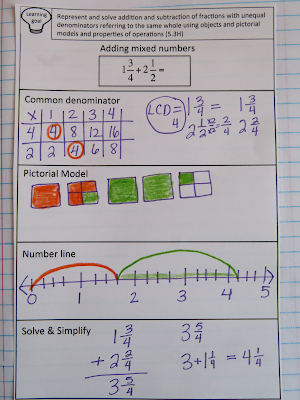 Learning goal
Represent and solve addition and subtraction of fractions with unequal
denominators referring to the same whole using objects and pictorial
models and properties of operations (5.3H)
Adding mixed numbers
1 3/4 + 2 1/2 =
Common denominator
X 1 2 3 4
4 4 8 12 16
2 2 4 6 8
LCD= 4
1 3/4 = 1 3/4
2 1/2 = 2/4 2 2/4
Pictorial Model
Number line
0 1 2 3 4 5
Solve & Simplify
1 3/4
+ 2 2/4
3 5/4
3 5/4
3 + 1 1/4 = 4 1/4